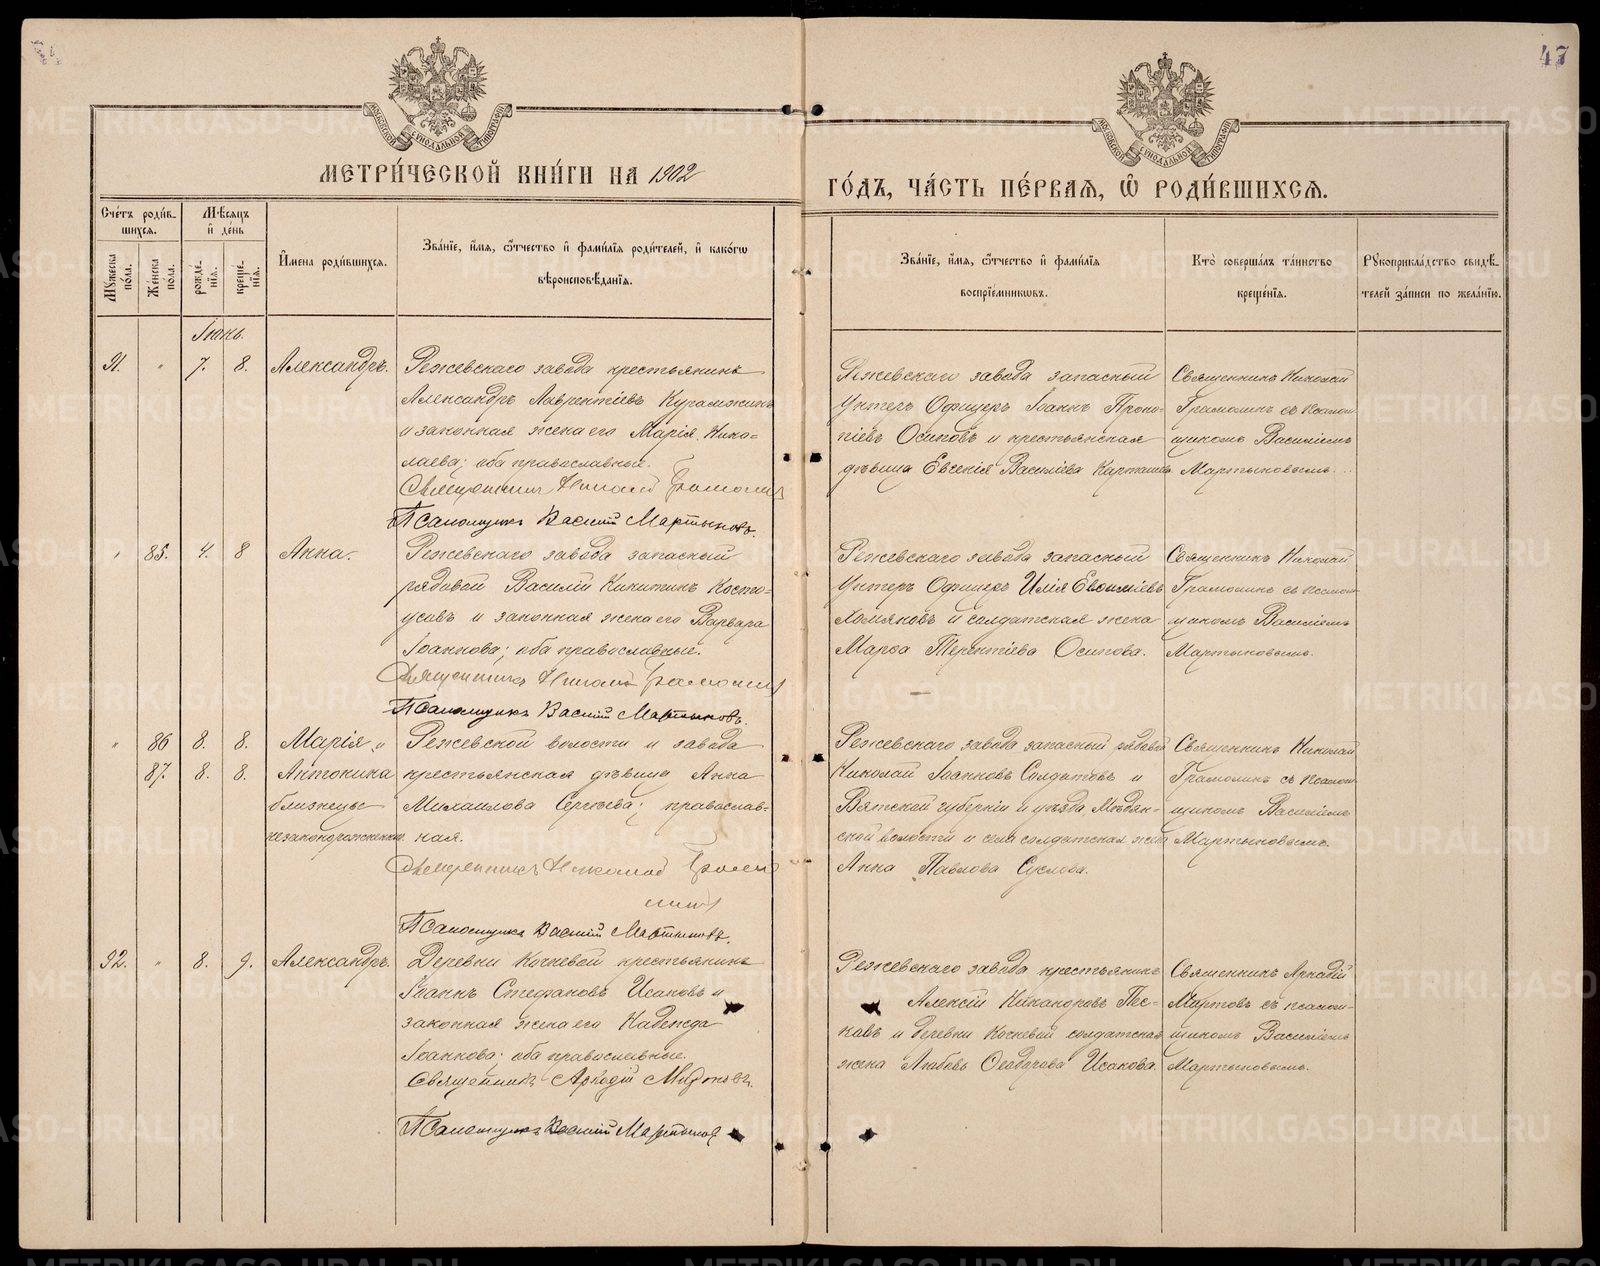 47
МОСКОВСКОЙ СИНОДАЛЬНОЙ ТИПОГРАФІИ
МОСКОВСКОЙ СИНОДАЛЬНОЙ ТИПОГРАФІИ
МЕТРИ́ЧЕСКОЙ КНИ́ГИ НА 1902
ГО́ДЪ, ЧА́СТЬ ПЕ́РВАѦ, Ѽ РОДИ́ВШИХСѦ.
Сче́тъ роди́в-
шихсѧ.
Мѣ́сѧцъ
и҆ де́нь
Мꙋ́жеска по́ла.
Же́нска по́ла.
рожде́-
нїѧ.
креще́-
нїѧ.
И҆мена̀ роди́вшихсѧ.
Зва́нїе, и҆́мѧ, ѻ҆́тчество и҆ фамі́лїѧ роди́телей, и҆ како́гѡ
вѣроисповѣ́данїѧ.
Зва́нїе, и҆́мѧ, ѻ҆́тчество и҆ фамі́лїѧ
воспрїе́мникѡвъ.
Кто̀ соверша́лъ та́инство
креще́нїѧ.
Рꙋкоприкла́дство свидѣ́-
телей за́писи по жела́нїю.
Іюнь.
91. „ 7. 8. Александръ.
Режевскаго завода крестьянинъ
Александръ Лаврентіевъ
и законная жена его Марія Нико-
лаева; оба православные.
Священникъ Николай Грамолин
Псаломщикъ Василій Мартыновъ.
Режевскаго завода запасный
Унтеръ Офицеръ Іоаннъ Проко-
піевъ Осиповъ и крестьянская
дѣвица Евгенія Василіева
Священникъ Николай
Грамолинъ съ псалом-
щикомъ Василіемъ
Мартыновымъ.
„ 85. 4. 8 Анна.
Режевскаго завода запасный
рядовой Василій Никитинъ Косто-
усовъ и законная жена его Варвара
Іоаннова; оба православные.
Священникъ Николай Грамолин
Псаломщикъ Василій Мартыновъ.
Режевскаго завода запасный
Унтеръ Офицеръ Илія Евѳиміевъ
Хомяковъ и солдатская жена
Марѳа Терентіева Осипова.
Священникъ Николай
Грамолинъ съ псалом-
щикомъ Василіемъ
Мартыновымъ.
„ 86 8. 8. Марія и
87. 8. 8. Антонина
близнецы
незаконорожденныя
Режевской волости и завода
крестьянская дѣвица Анна
Михаилова Сергѣева; православ-
ная.
Священникъ Николай Грамо
лин
Псаломщикъ Василій Мартыновъ.
Режевскаго завода запасный рядовой
Николай Іоанновъ Солдатовъ и
Вятской губерніи и уѣзда, Мѣдян-
ской волости и села солдатская жена
Анна Павлова Суслова.
Священникъ Николай
Грамолинъ съ псалом-
щикомъ Василіемъ
Мартыновымъ.
92. „ 8. 9. Александръ.
Деревни Кочневой крестьянинъ
Іоаннъ Стефановъ Исаковъ и
законная жена его Надежда
Іоаннова; оба православные.
Священникъ Аркадій
Псаломщикъ Василій Мартыновъ
Режевскаго завода крестьянинъ
Алексій Никаноровъ Пес-
ковъ и деревни Кочневой солдатская
жена Любовь Ѳеодорова Исакова.
Священникъ Аркадій
съ псалом-
щикомъ Василіемъ
Мартыновымъ.
METRIKI.GASO-URAL.RU